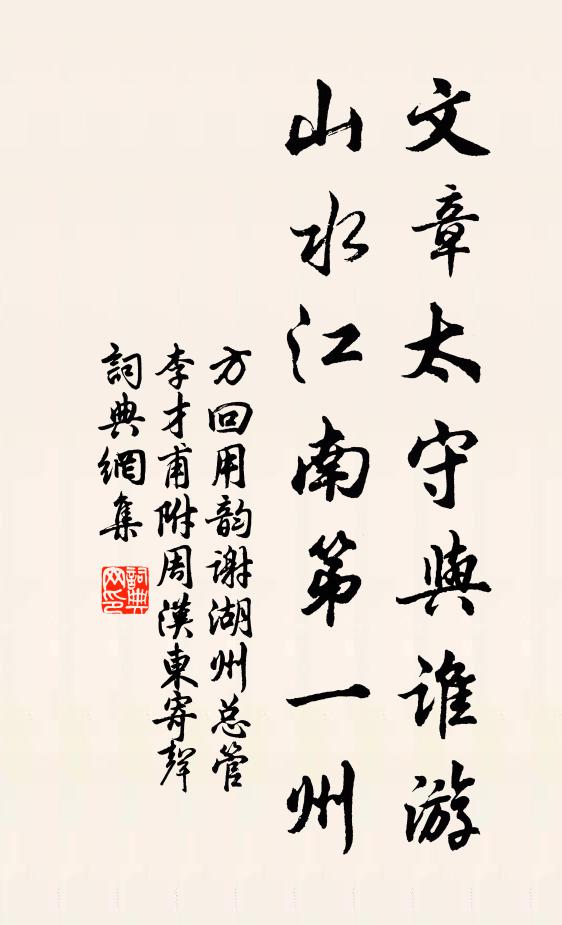 文章太守與誰游
山水江南第一州
方回用韵谢湖州总管
李才甫附周漢東寄聲
詞典網集
詞典网印